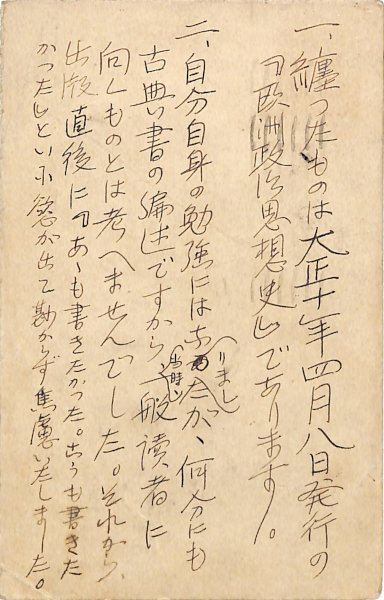 一、纏つたものは大正十年四月八日発行の
『欧洲政治思想史』であります。
二、自分自身の勉強にはなりましたが、何分にも
古典書の編述ですから当時一般読者に
向くものとは考へませんでした。それから、
出版直後に『あゝも書きたかつた。こうも書きた
かつた』といふ念が出て勘からず焦慮いたしました。